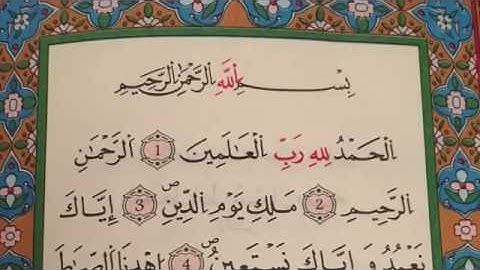 بِسْمِ اللَّهِ الرَّحْمَٰنِ الرَّحِيمِ
اَلْحَمْدُ لِلهِ رَبِّ الْعَالَمِينَ 1 اَلرَّحْمَٰنِ
الرَّحِيمِ 2 مَلِكِ يَوْمِ الدِّينِ 3 إِيَّاكَ
نَعْبُدُ وَإِيَّاكَ نَسْتَعِينُ 4 اِهْدِنَا الصِّرَاطَ